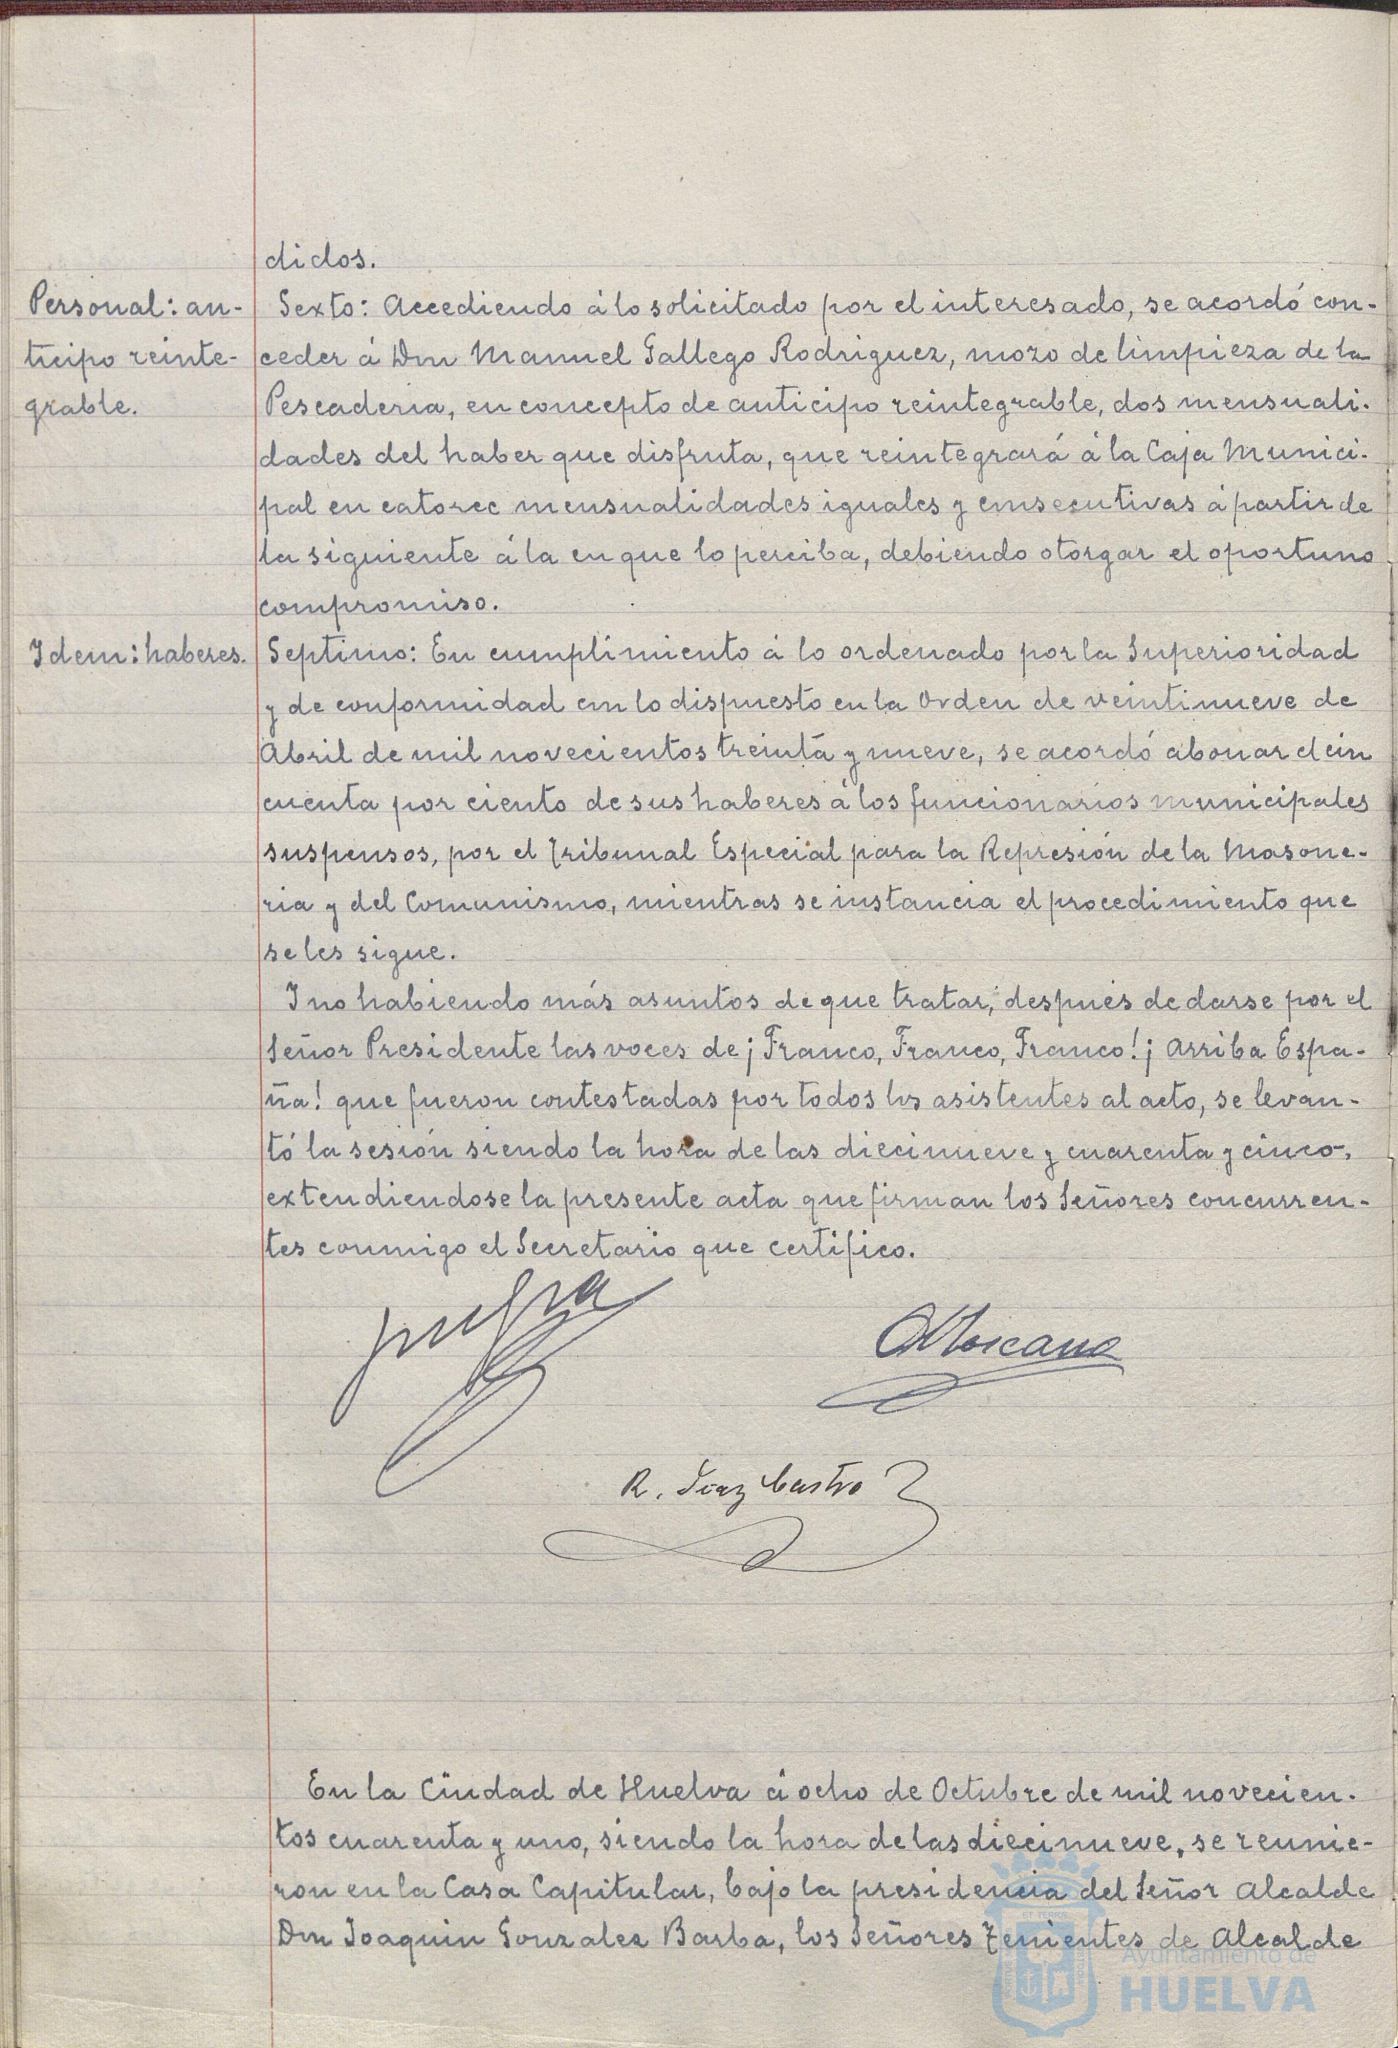 didos.
Personal: an-
ticipo reinte-
grable.
Sexto: Accediendo á lo solicitado por el interesado, se acordó con-
ceder á Don Manuel Gallego Rodriguez, mozo de limpieza de la
Pescaderia, en concepto de anticipo reintegrable, dos mensuali-
dades del haber que disfruta, que reintegrará á la Caja Munici-
pal en catorce mensualidades iguales y consecutivas á partir de
la siguiente á la en que lo perciba, debiendo otorgar el oportuno
compromiso.
Idem: haberes.
Septimo: En cumplimiento á lo ordenado por la Superioridad
y de conformidad con lo dispuesto en la Orden de veintinueve de
Abril de mil novecientos treinta y nueve, se acordó abonar el cin
cuenta por ciento de sus haberes á los funcionarios municipales
suspensos, por el Tribunal Especial para la Represión de la Masone-
ria y del Comunismo, mientras se instancia el procedimiento que
se les sigue.
Y no habiendo más asuntos de que tratar, después de darse por el
Señor Presidente las voces de ¡Franco, Franco, Franco! ¡Arriba Espa-
ña! que fueron contestadas por todos los asistentes al acto, se levan-
tó la sesión siendo la hora de las diecinueve y cuarenta y cinco,
extendiendose la presente acta que firman los Señores concurren-
tes conmigo el Secretario que certifico.
Toscano
R. Diaz Castro
En la Ciudad de Huelva á ocho de Octubre de mil novecien-
tos cuarenta y uno, siendo la hora de las diecinueve, se reunie-
ron en la Casa Capitular, bajo la presidencia del Señor Alcalde
Don Joaquin Gonzalez Barba, los Señores Tenientes de Alcalde
Ayuntamiento de
HUELVA